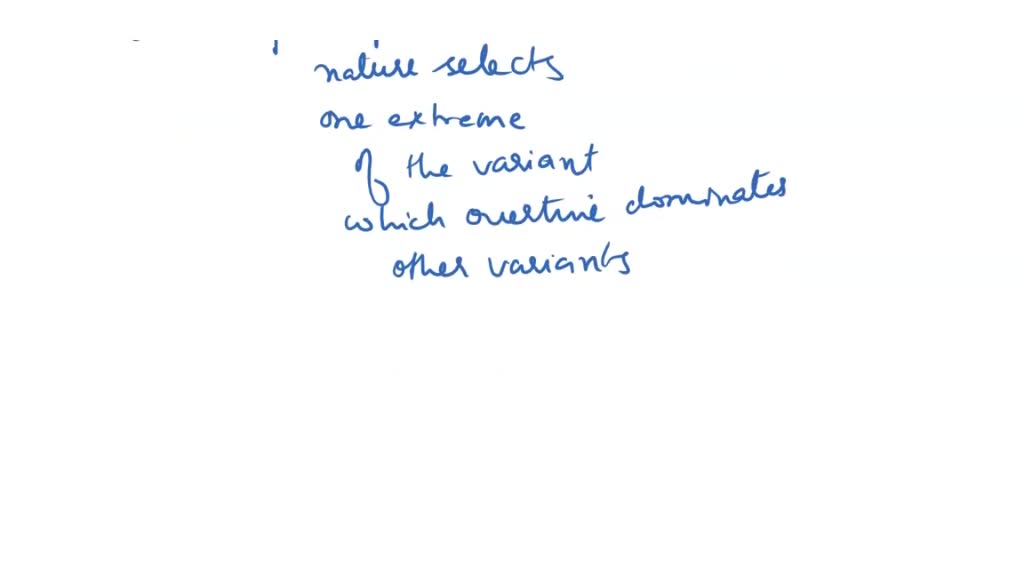 nature selects
one extreme
of the variant
which overtime dominates
other variants